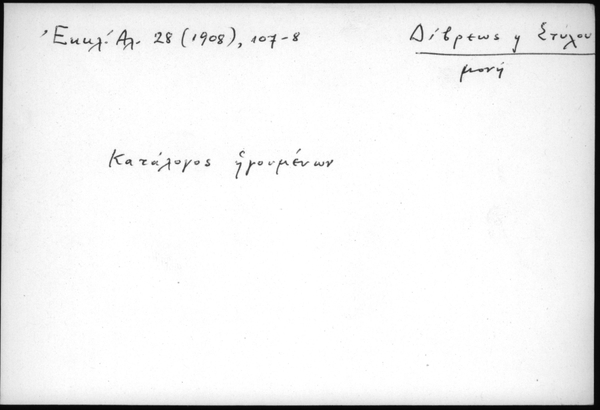 Ἐκκλ. Ἀλ. 28 (1908), 107-8
Δίβρεως ἢ Στύλου
μονή
Κατάλογος ἡγουμένων